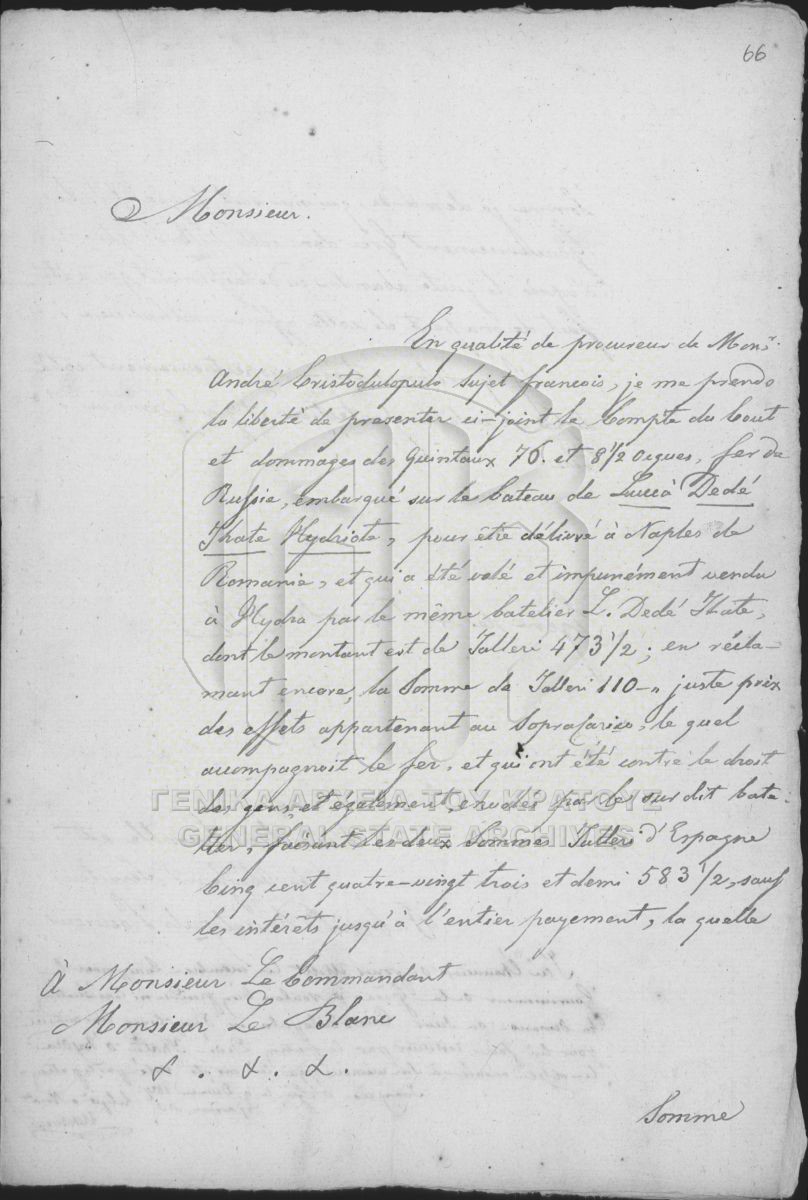 66
Monsieur.
En qualité de procureur de Monsr.
André Cristodulopulo Sujet francois, je me prends
la liberté de presenter ci-joint le Compte du Cout
et dommages des Quintaux 76. et 8 1/2 Ocques, fer de
Russie, embarqué sur le bateau de Luccà Dedé
Hydriote, pour être délivré à Naples de
Romanie, et qui a été volé et impunément vendu
à Hydra par le même batelier L. Dedé
dont le montant est de Talleri 473 1/2; en récla-
mant encore, la Somme de Talleri 110-„ juste prix
des effets appartenant au Sopracarico, le quel
accompagnoit le fer, et qui ont été contre le droit
des gens, et également, par le sur dit bate-
lier, faisant les deux Sommes Talleri d'Espagne
Cinq cent quatre-vingt trois et demi 583 1/2, sauf
les intérêts jusqu'à l'entier payement, la quelle
ΓΕΝΙΚΑ ΑΡΧΕΙΑ ΤΟΥ ΚΡΑΤΟΥΣ
GENERAL STATE ARCHIVES
À Monsieur Le Commandant
Monsieur Le Blanc
&. &. &.
Somme